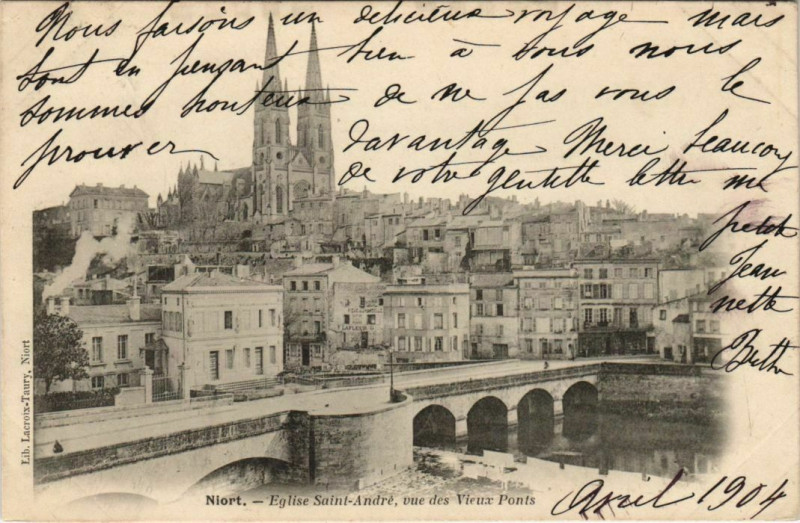 Nous faisons un délicieux voyage mais
tout en pensant bien à vous nous
sommes honteux de ne pas vous le
prouver davantage Merci beaucoup
de votre gentille lettre ma
petite
Jean
nette
Berthe
Avril 1904
Lib. Lacroix-Taury, Niort
Niort. — Eglise Saint-André, vue des Vieux Ponts